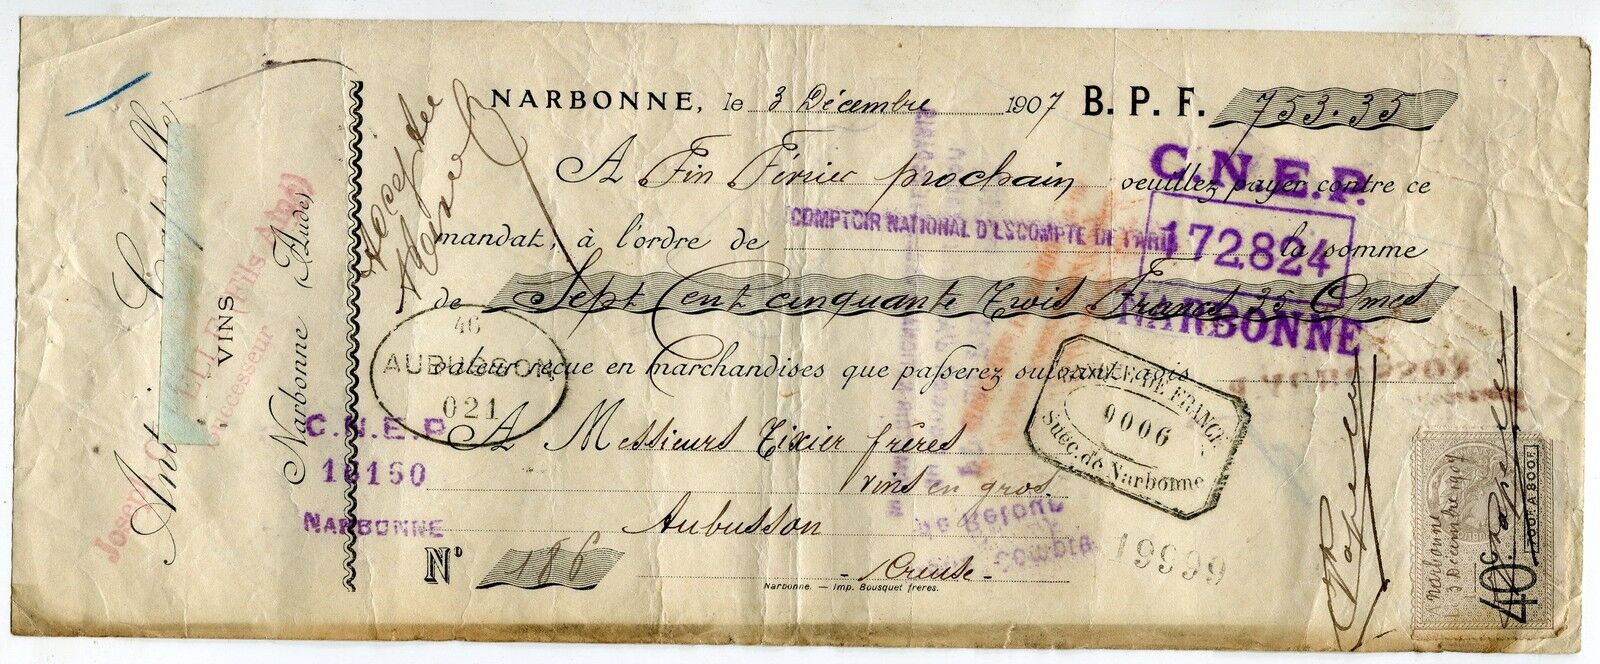 NARBONNE, le 3 Décembre 1907 B. P. F. 753.35
A Fin Février prochain veuillez payer contre ce
mandat, à l'ordre de COMPTOIR NATIONAL D'ESCOMPTE DE PARIS la somme
de Sept Cent cinquante trois Francs 35 Cmes
valeur reçue en marchandises que passerez suivant avis
A Messieurs Tixier frères
vins en gros
Aubusson
Creuse
N° 186
Narbonne. — Imp. Bousquet frères.
Ant
VINS
Narbonne (Aude)
Joseph
(Fils Aîné)
Successeur
C.N.E.P.
172.824
NARBONNE
46
AUBUSSON
021
C.N.E.P.
16160
NARBONNE
BANQUE DE FRANCE
0006
Succ. de Narbonne
19999
de Retour
Compte
Narbonne
3 Décembre 1907
40c
700F. A 800F.